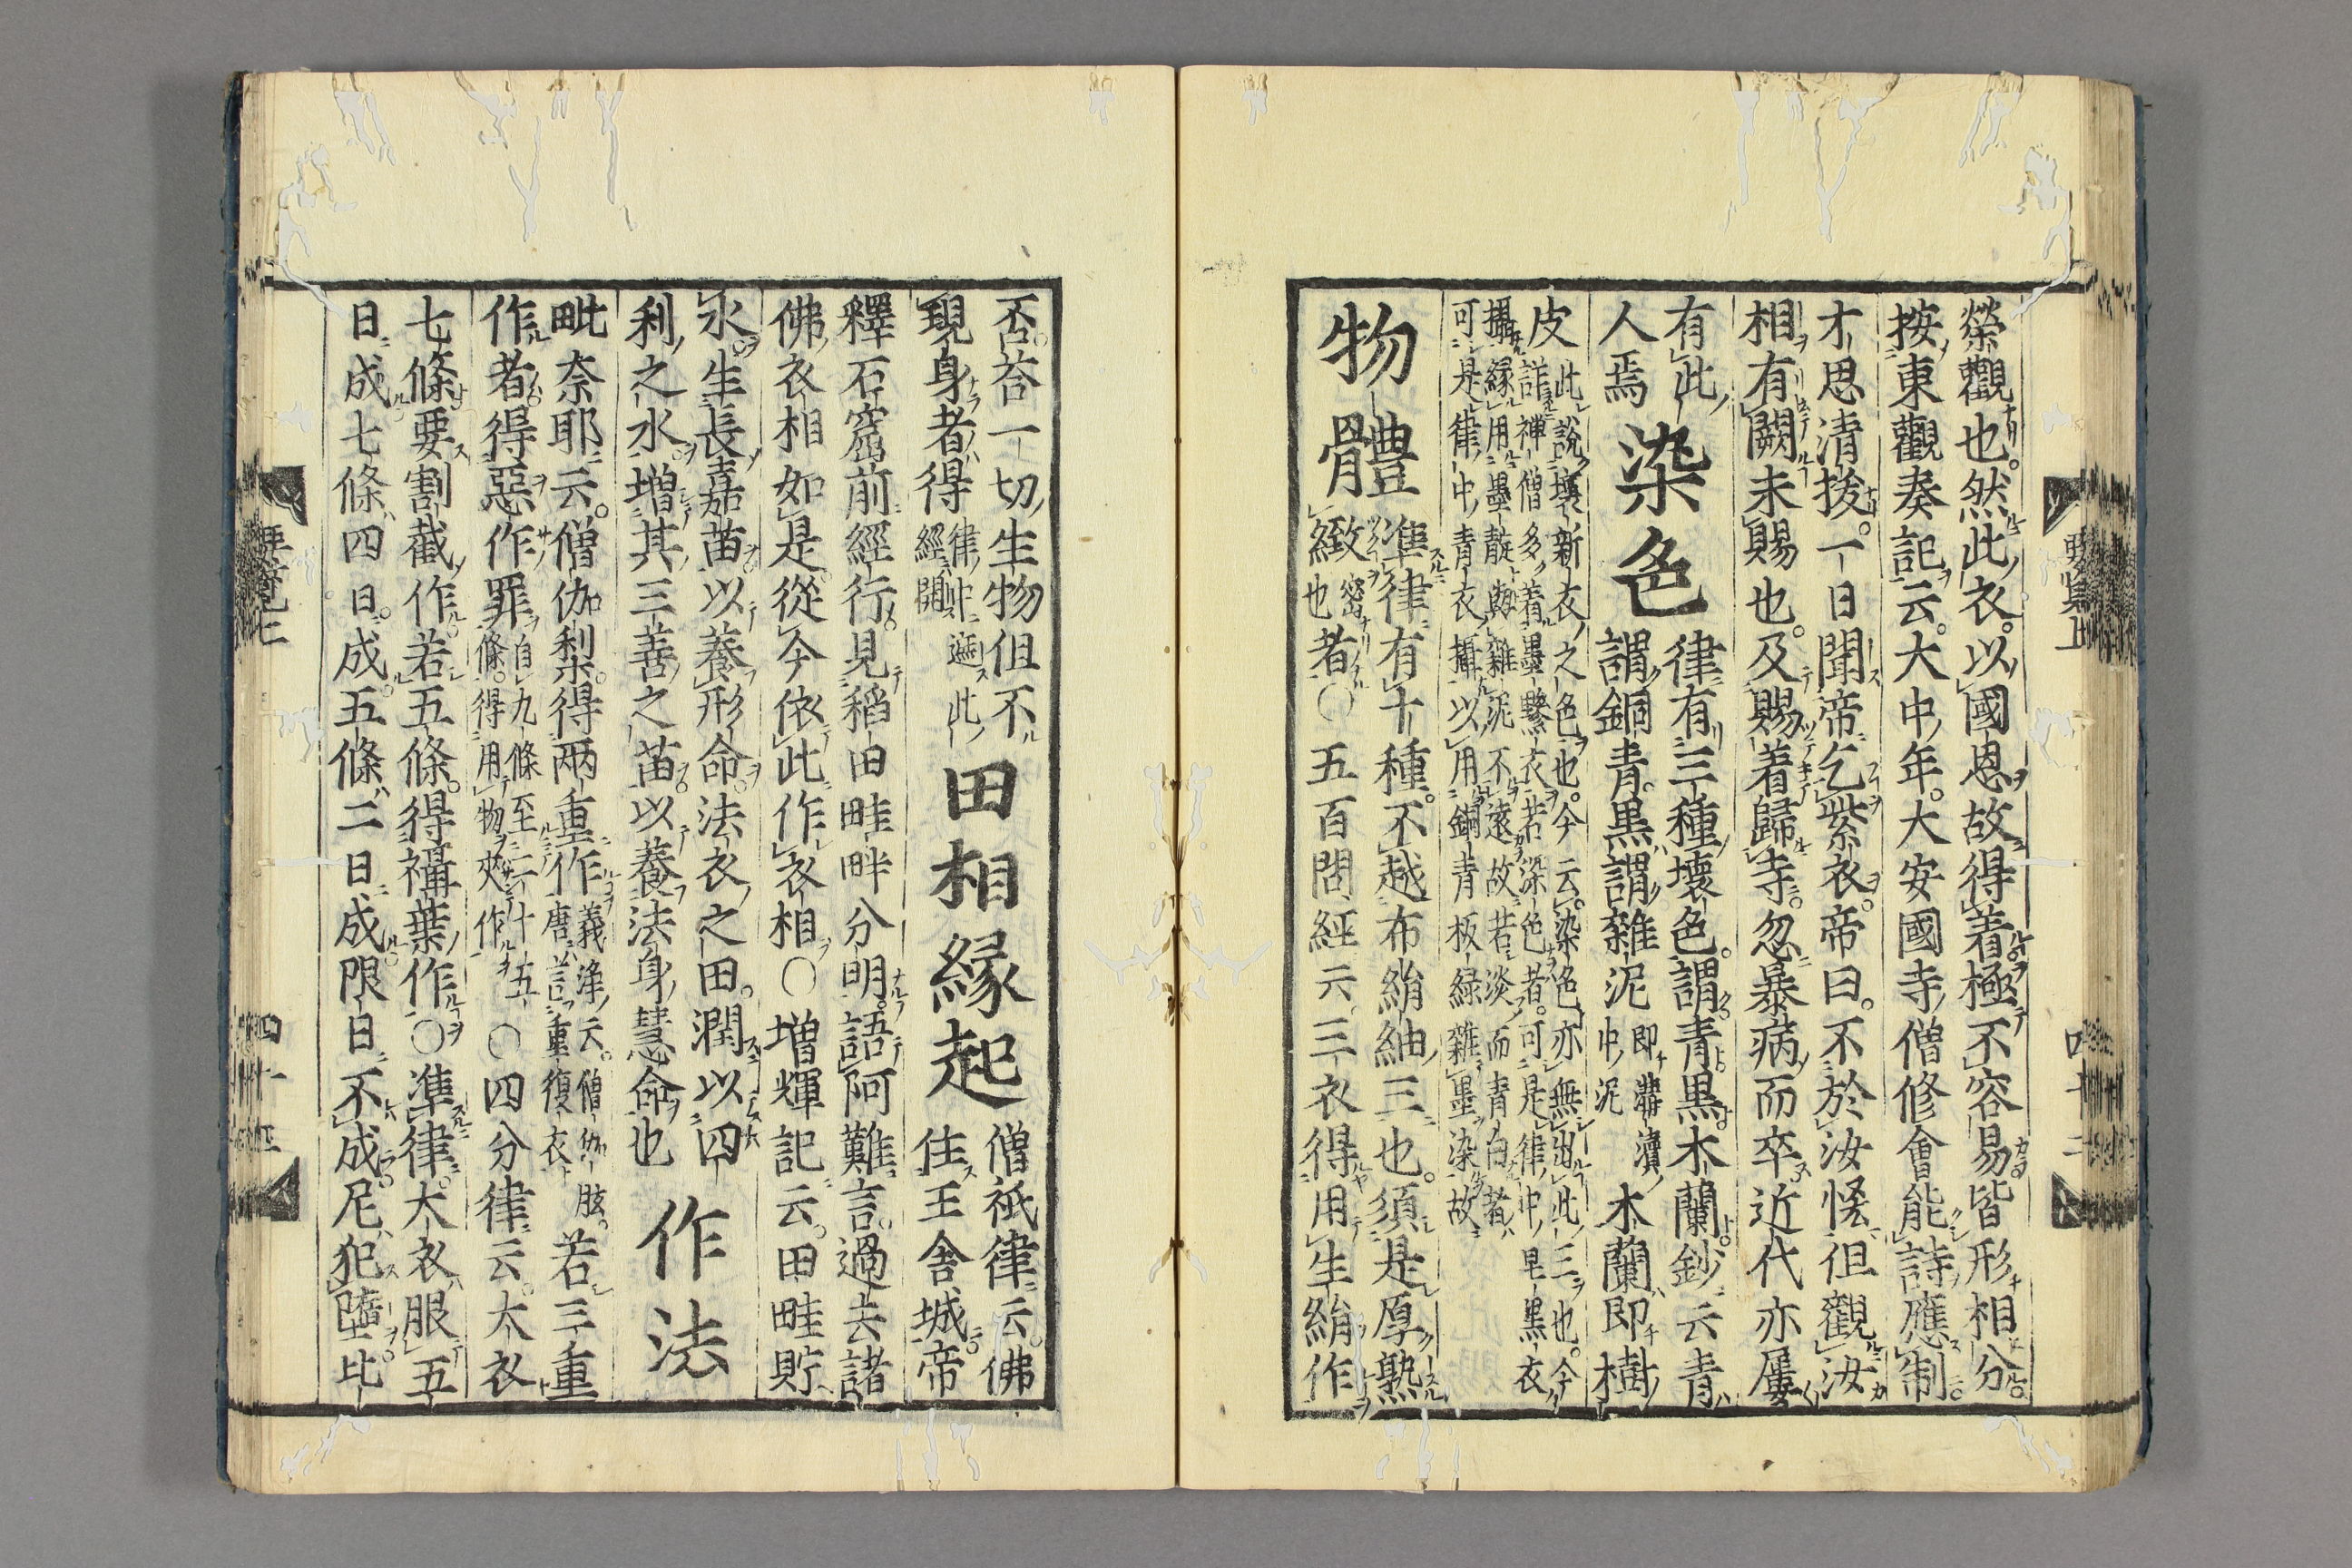 榮觀也。然此衣。以國恩故得着極不容易皆形相分。
按東觀奏記云。大中年。大安國寺僧修會能詩應制。
才思清拔。一日聞帝乞紫衣。帝曰。不於汝恡但觀汝
相有闕未賜也。及賜着歸寺。忽暴病而卒近代亦屢
有此
人焉
染色
律有三種壞色。謂青黑木蘭鈔云青
謂銅青。黑謂雜泥
即溝瀆
中泥
木蘭即樹
皮
此說壞新衣之色也。今云染色亦無出此三也。今
詳禪僧多着墨黲衣若深色者。可是律中皂黑衣
攝緣用墨靛與雜泥不遠故若淡而青白者
可是律中青衣攝以用銅青板緑雜墨染故
物體
準律有十種。不越布絹紬三也。須是厚熟
緻
密
也
者〇五百問經云。三衣得用生絹作
否。荅一切生物但不
現身者得
律中
經開
遮此
田相緣起
僧祇律云。佛
住王舍城帝
釋石窟前經行見稻田畦畔分明。語阿難言。過去諸
佛衣相如是從今依此作衣相〇增輝記云。田畦貯
水。生長嘉苗以養形命。法衣之田。潤以四
利之水增其三善之苗。以養法身慧命也
作法
毗奈耶云。僧伽梨得兩重作
義淨云。僧伽胝。
唐言重復衣
若三重
作者得惡作罪
自九條至二十五
條。得用物夾作
〇四分律云。大衣
七條要割截作若五條。得襵葉作〇準律。大衣限五
日成七條四日。成五條二日成限日不成尼犯墮比